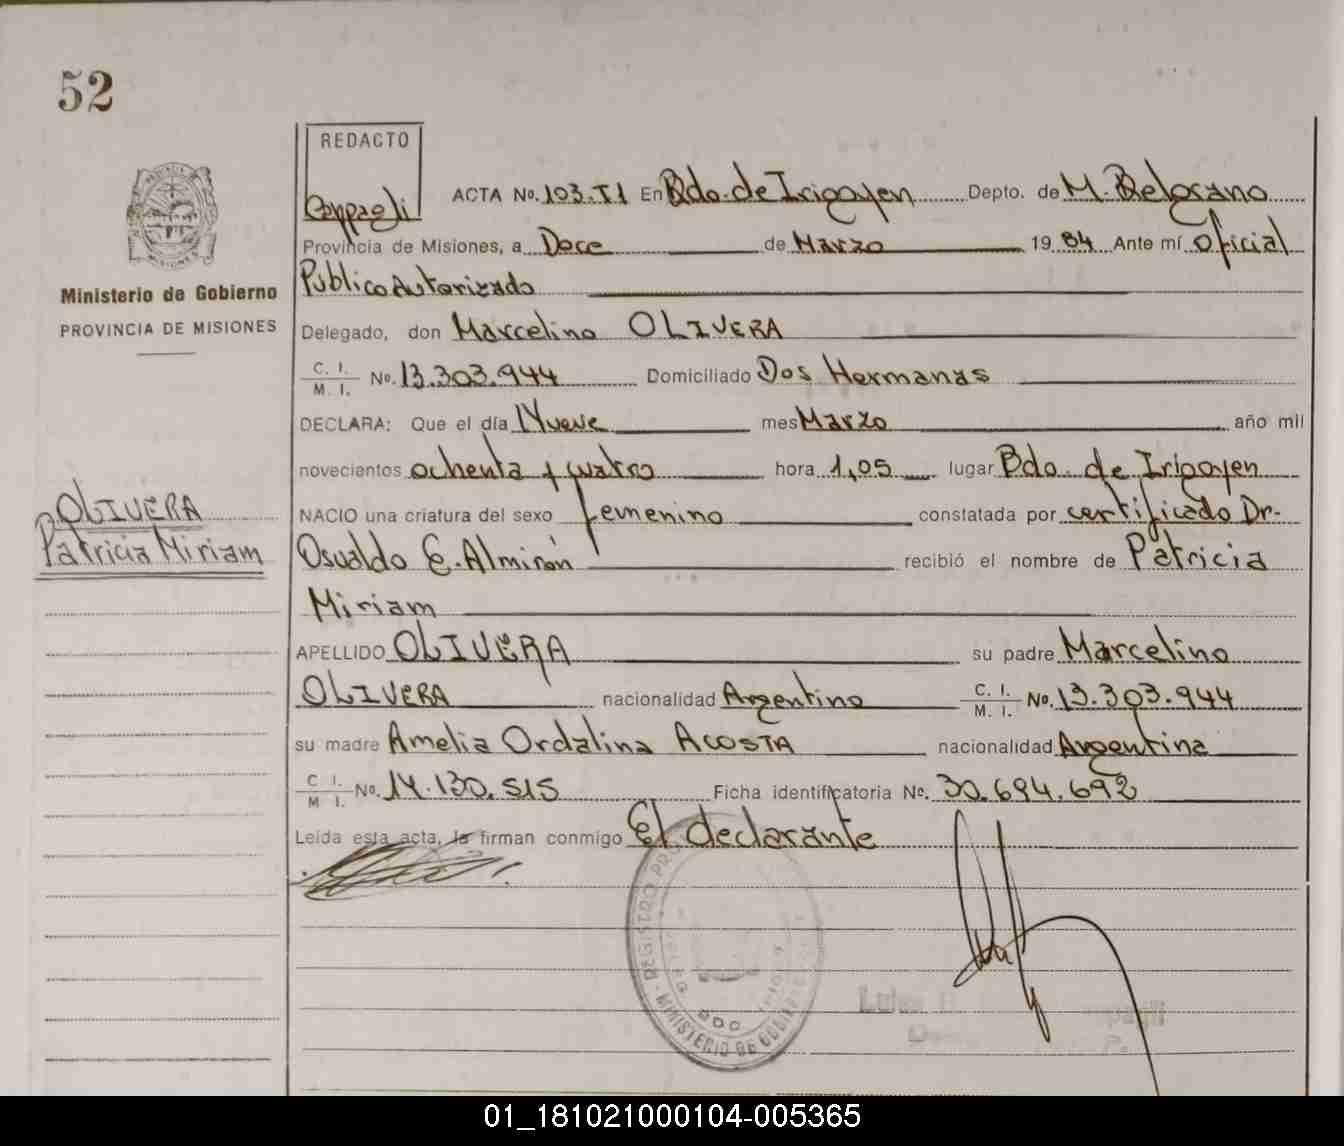 52
REDACTO
Ceppagli
ACTA No. 103.TI En Bdo. de Irigoyen Depto. de M. Belgrano
Provincia de Misiones, a Doce de Marzo 19 84 Ante mí Oficial
Publico Autorizado
Delegado, don Marcelino OLIVERA
C. I. M. I. No. 13.303.944 Domiciliado Dos Hermanas
DECLARA: Que el día Nueve mes Marzo año mil
novecientos ochenta y cuatro hora 1,05 lugar Bdo. de Irigoyen
NACIO una criatura del sexo femenino constatada por certificado Dr-
Osualdo E. Almirón recibió el nombre de Patricia
Miriam
APELLIDO OLIVERA su padre Marcelino
OLIVERA nacionalidad Argentino C. I. M. I. No. 13.303.944
su madre Amelia Ordalina ACOSTA nacionalidad Argentina
C I. M I. No. 14.130.515 Ficha identificatoria No. 30.694.692
Leída esta acta, la firman conmigo El declarante
Ministerio de Gobierno
PROVINCIA DE MISIONES
OLIVERA
Patricia Miriam
REGISTRO PRO
MINISTERIO DE GOBIERNO
01_181021000104-005365